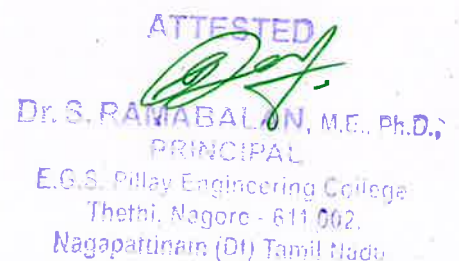 ATTESTED
Dr. S. RAMABALAN, M.E., Ph.D.,
PRINCIPAL
E.G.S. Pillay Engineering College
Thethi, Nagore - 611 002.
Nagapattinam (Dt) Tamil Nadu